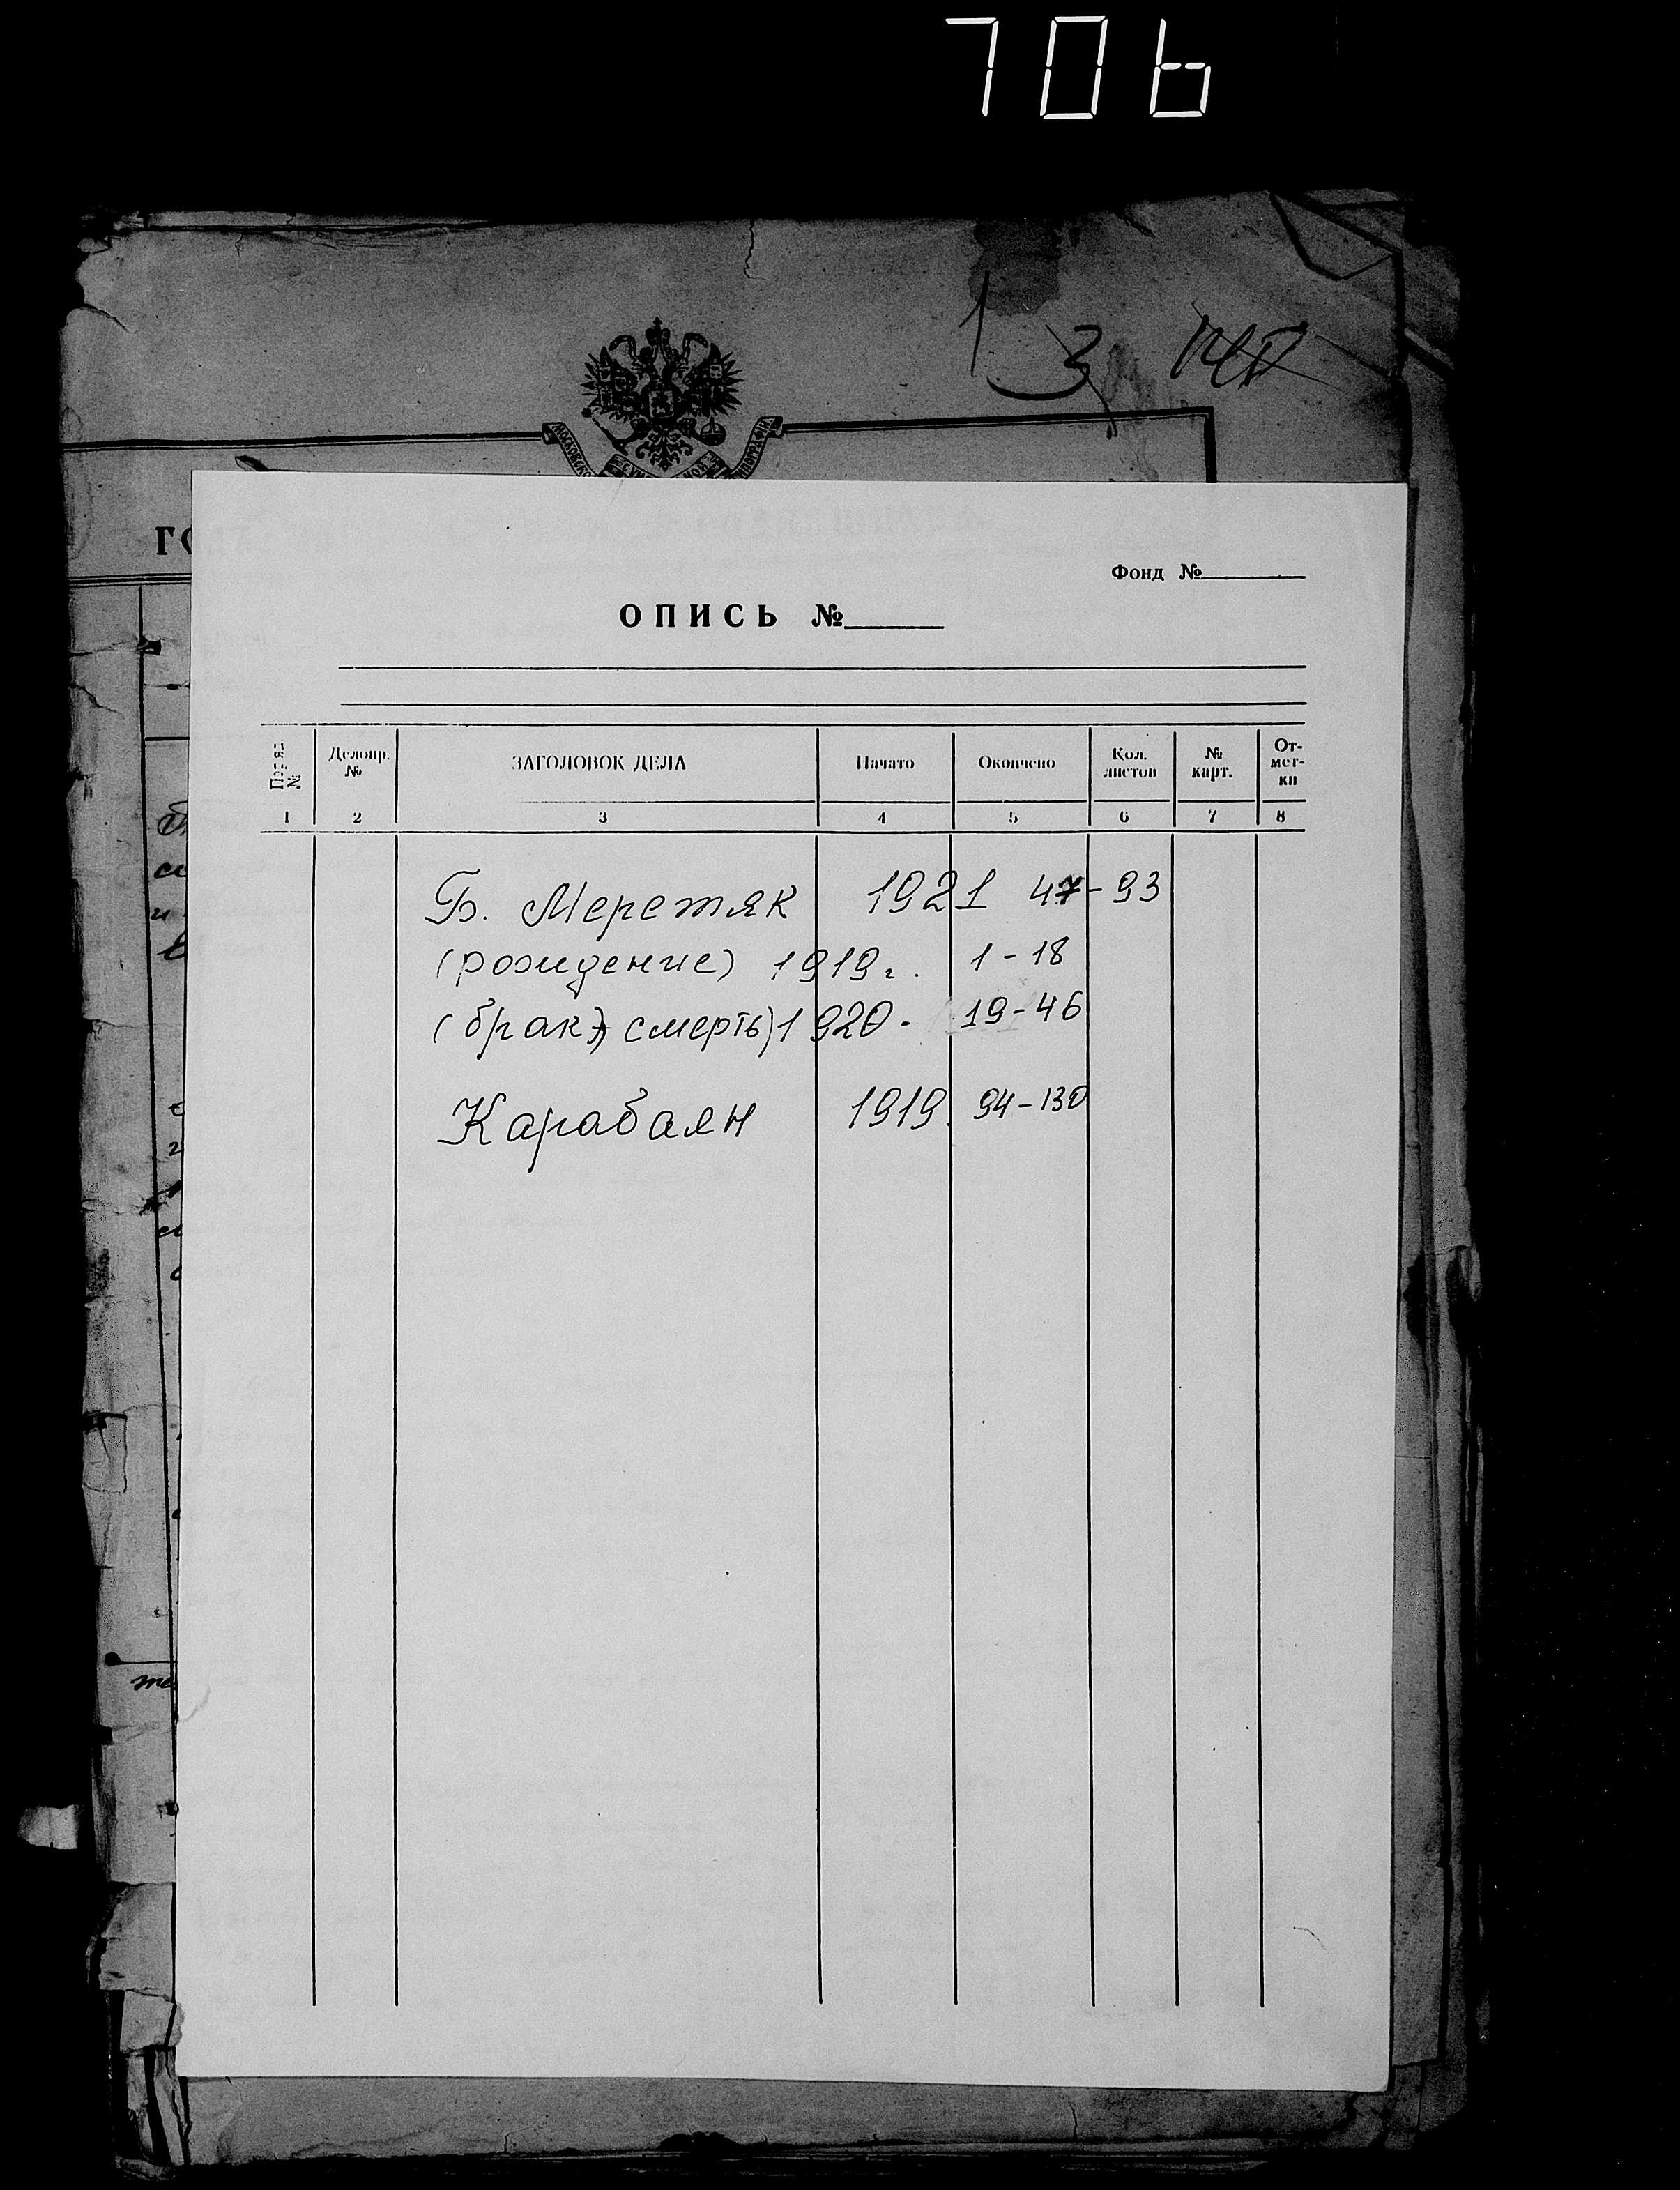 706
1
3
МОСКОВСКО
ГО
Фонд №
ОПИСЬ №
Поряд. № Делопр. № ЗАГОЛОВОК ДЕЛА Начато Окончено Кол. листов № карт. От-мет-ки
1 2 3 4 5 6 7 8
Б. Мережяк 1921 47-93
(рождение) 1919г. 1-18
(брак), смерть) 1920. 19-46
Карабаян 1919. 94-130